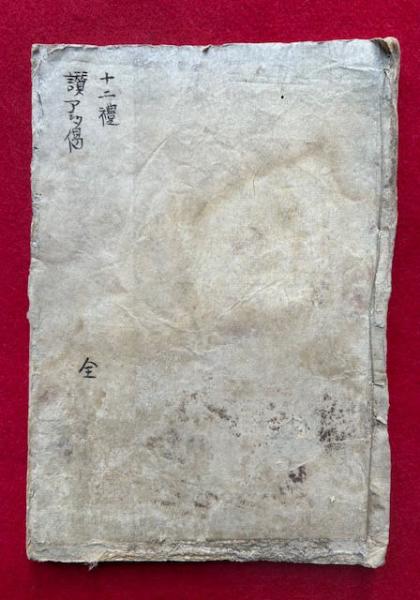 十二禮
讃アミタ偈
全